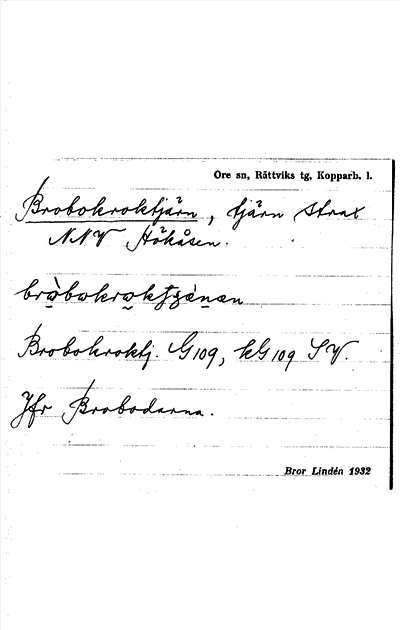 Ore sn, Rättviks tg, Kopparb. l.
Brobokroktjärn, tjärn strax
NNV Hökåsen.
Brobokroktj. G109, kG109 SV.
Jfr Brobodarna.
Bror Lindén 1932